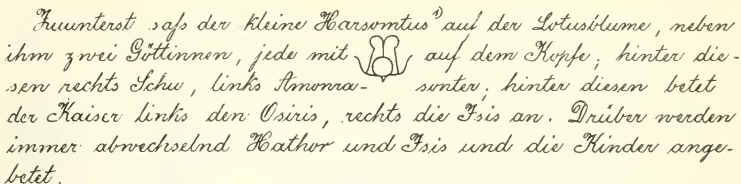 Zuunterst saſs der kleine Harsomtus¹) auf der Lotusblume, neben
ihm zwei Göttinnen, jede mit auf dem Kopfe; hinter die-
sen rechts Schu, links Amonra-sonter; hinter diesen betet
der Kaiser links den Osiris, rechts die Isis an. Drüber werden
immer abwechselnd Hathor und Isis und die Kinder ange-
betet.